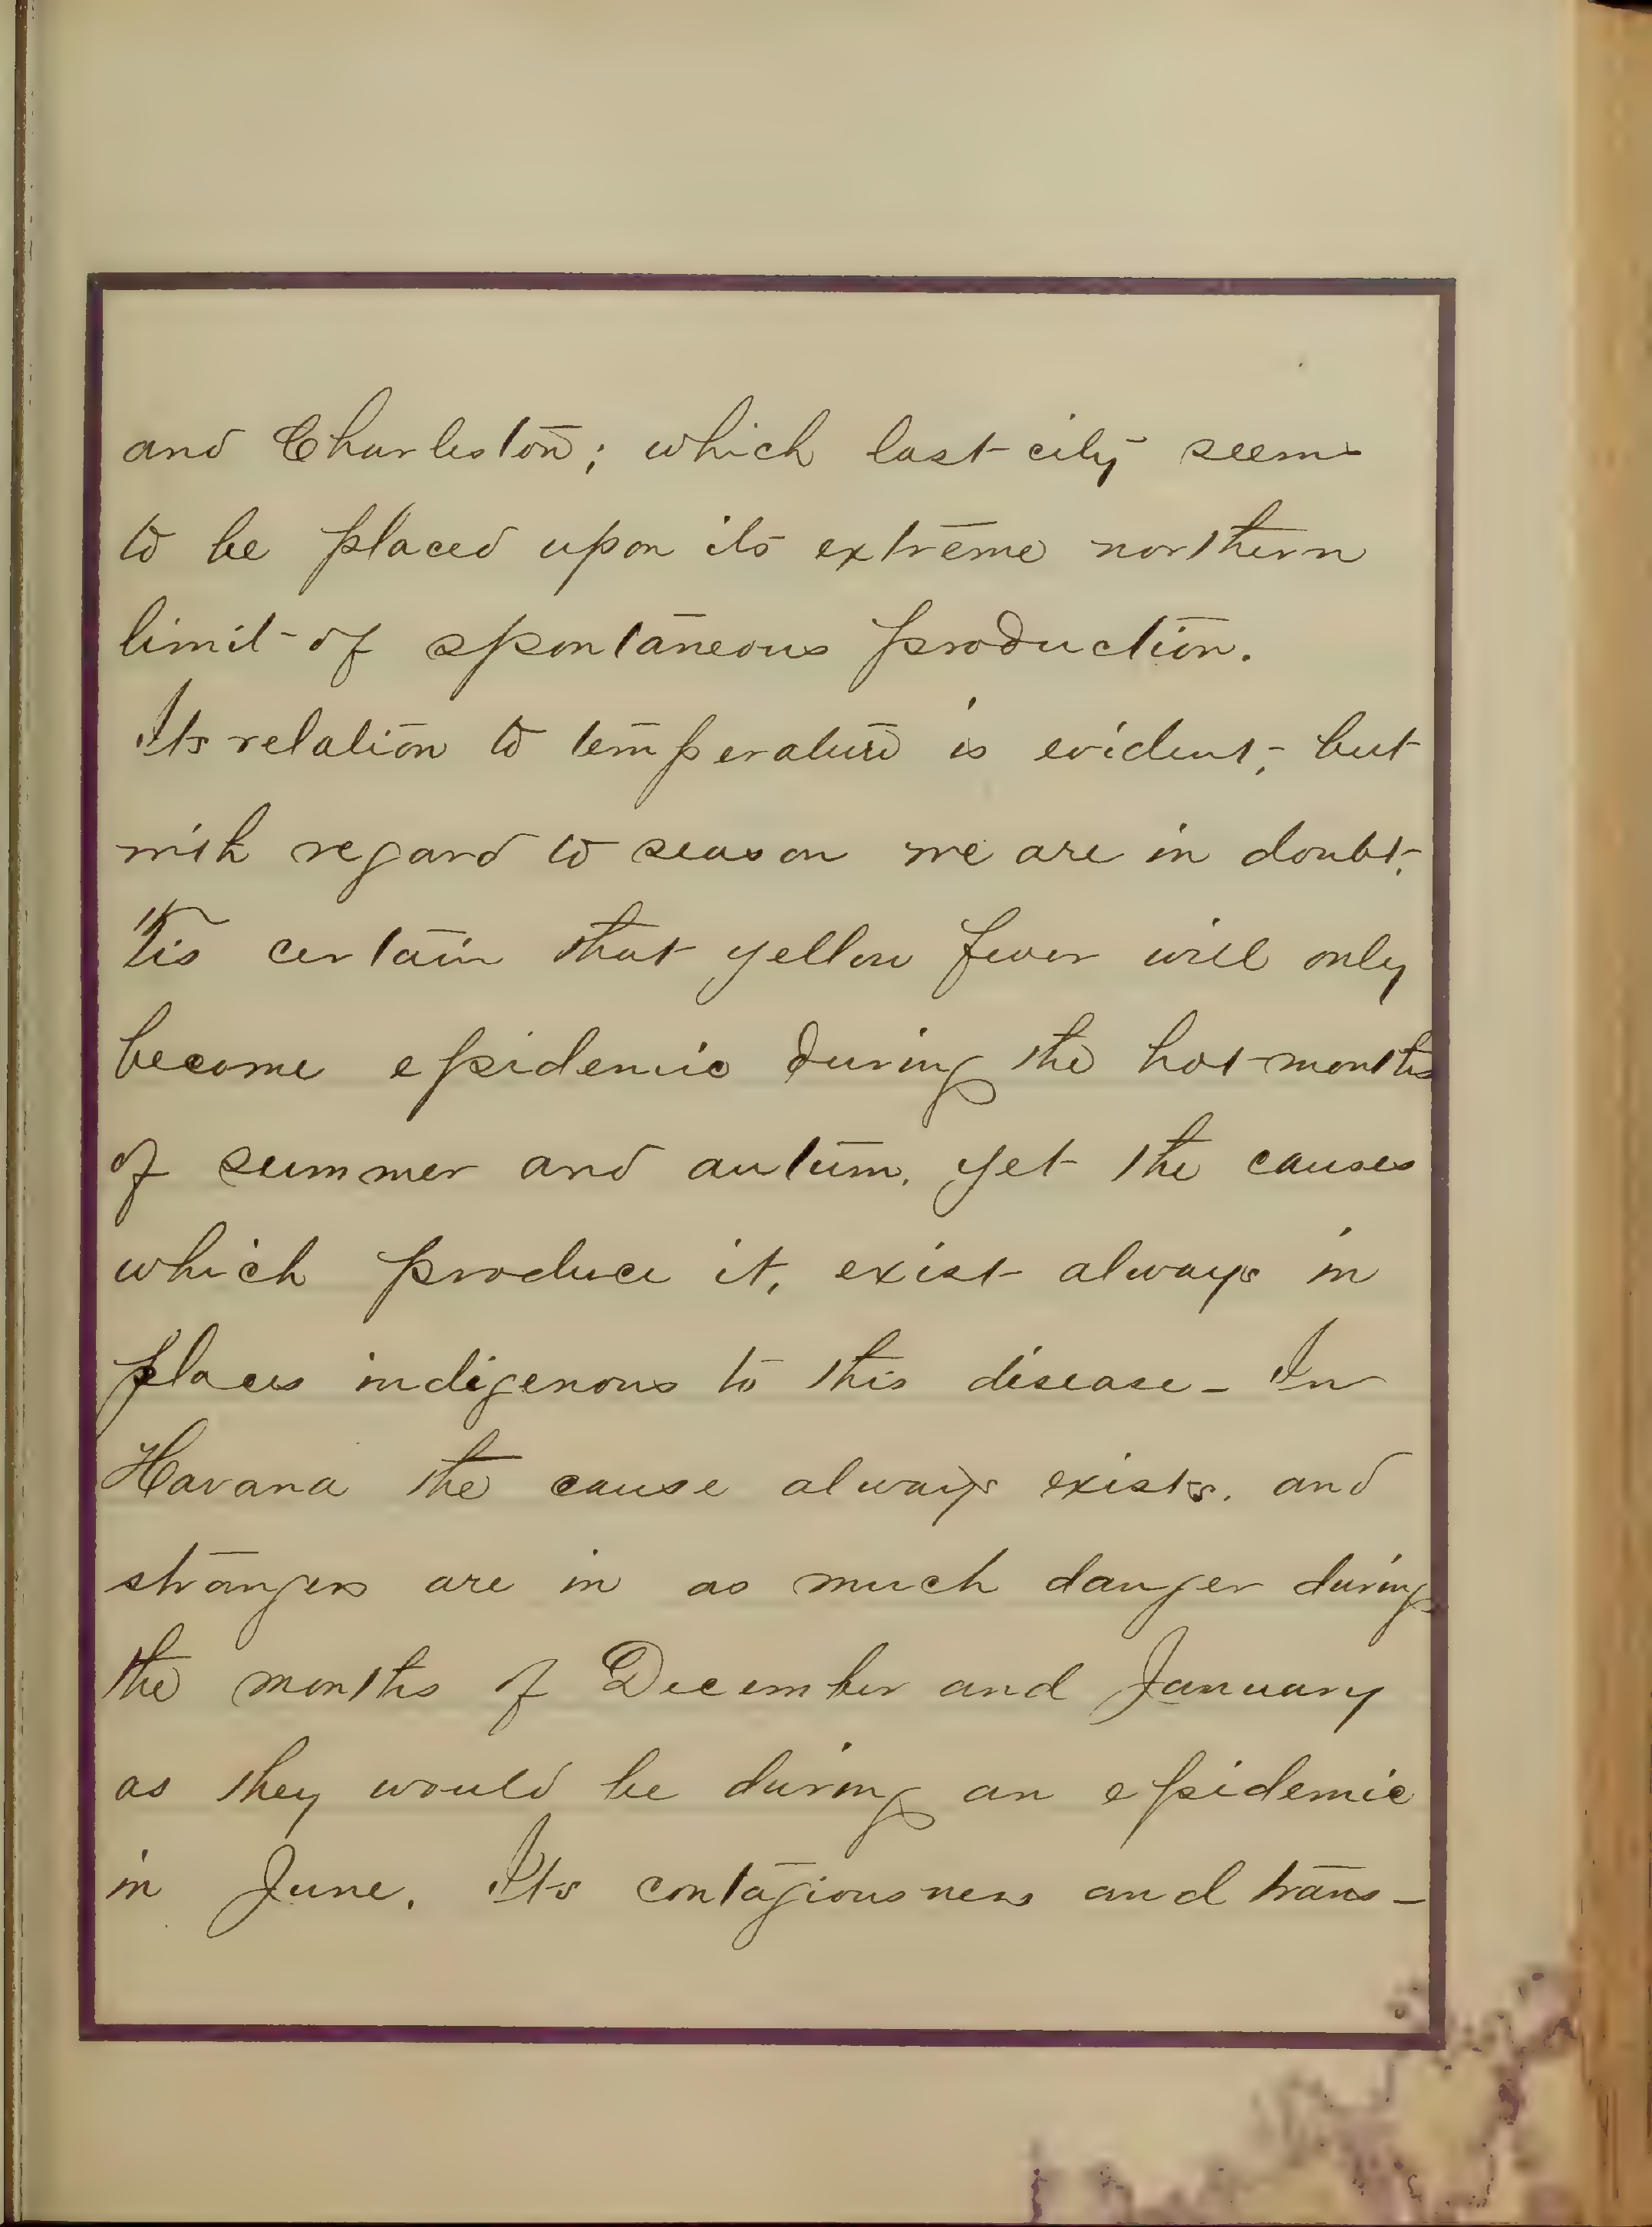 and Charleston; which last city seems
to be placed upon its extreme northern
limit of spontaneous production.
Its relation to temperature is evident; but
with regard to season we are in doubt.
'Tis certain that yellow fever will only
become epidemic during the hot months
of summer and autum, yet the causes
which produce it, exist always in
places indigenous to this disease - In
Havana the cause always exists, and
strangers are in as much danger during
the months of December and January
as they would be during an epidemic
in June. Its contagiousness and trans-